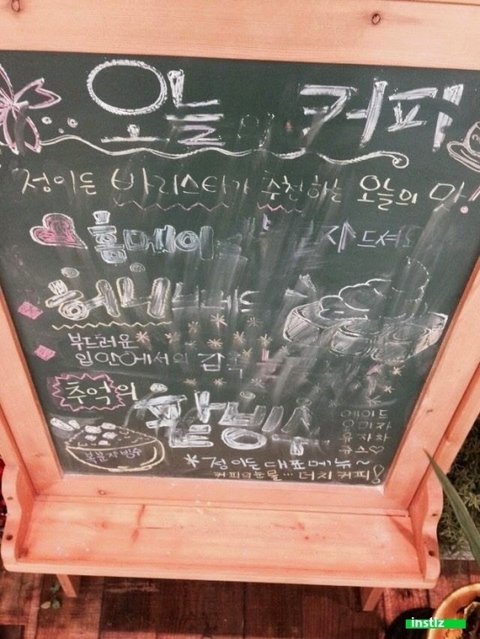 오늘의 커피
정이든 바리스타가 추천하는 오늘의 맛!
홈메이 자드셔요
허니브레드
부드러운
입안에서의 감촉
추억의
팥빙수
복분자빙수
에이드
오미자
유자차
쥬스♡
*정이든 대표메뉴~
커피의눈물…더치커피!
instiz